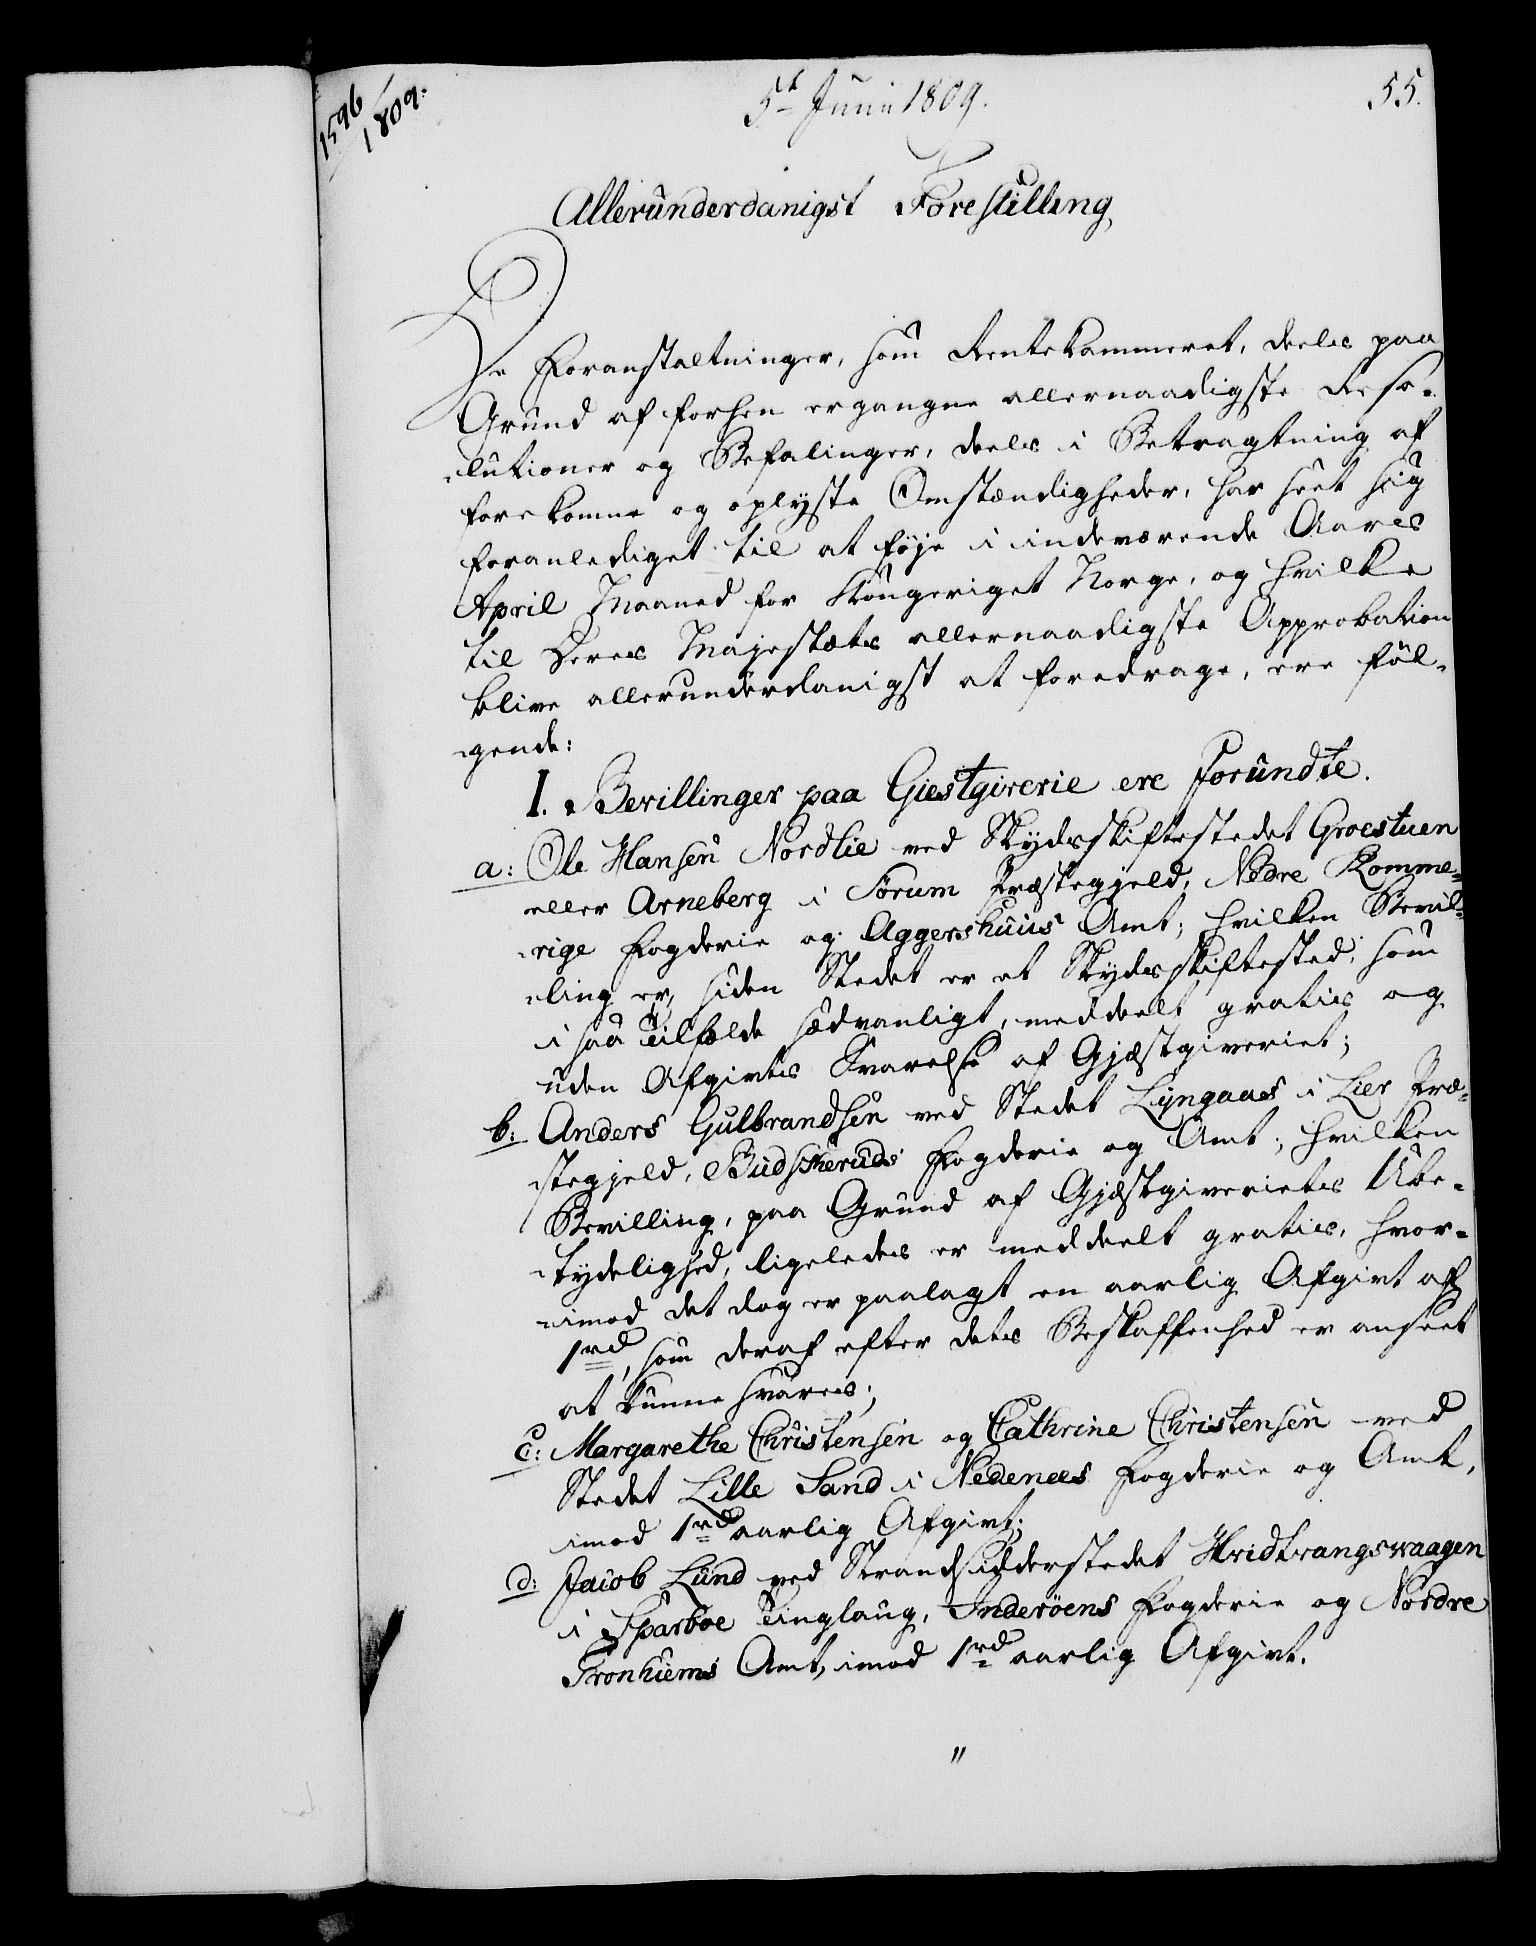 1596
1809.
5t Junii 1809.
55.
Allerunderdanigst Forestilling
De Foranstaltninger, som Rentekammeret, deels paa
Grund af forhen ergangne allernaadigste Reso-
lutioner og Befalinger, deels i Betragtning af
forekomne og oplyste Omstændigheder, har seet sig
foranlediget til at føje i indeværende Aares
April Maaned for Kongeriget Norge, og hvilke
til Deres Majestæts allernaadigste Approbation
blive allerunderdanigst at foredrage, ere føl-
gende:
I. Bevillinger paa Giestgiverie ere forundte.
a: Ole Hansen Nordlie ved Skydsskiftestedet Groestuen
eller Arneberg i Sörum Præstegjeld, Nedre Romme-
rige Fogderie og Aggershuus Amt; hvilken Bevil-
ling er, siden Stedet er et Skydsskiftested, som
i saa Tilfælde sædvanligt, meddeelt gratis og
uden Afgivts Svarelse af Gjæstgiveriet;
b: Anders Gulbrandsen ved Stedet Lyngaas i Lier Præ-
stegjeld, Budskeruds Fogderie og Amt; hvilken
Bevilling, paa Grund af Gjæstgiveriets Ube-
tydelighed, ligeledes er meddeelt gratis, hvor-
imod det dog er paalagt en aarlig Afgivt af
1rd, som deraf efter dets Beskaffenhed er anseet
at kunne svares;
c: Margarethe Christensen og Cathrine Christensen ved
Stedet Lille Sand i Nedenees Fogderie og Amt,
imod 1rd aarlig Afgivt;
d: Jacob Lund ved Strandsidderstedet Hridtrangswaagen
i Sparboe Tinglaug, Inderöens Fogderie og Nordre
Tronhiems Amt, imod 1rd aarlig Afgivt.
"